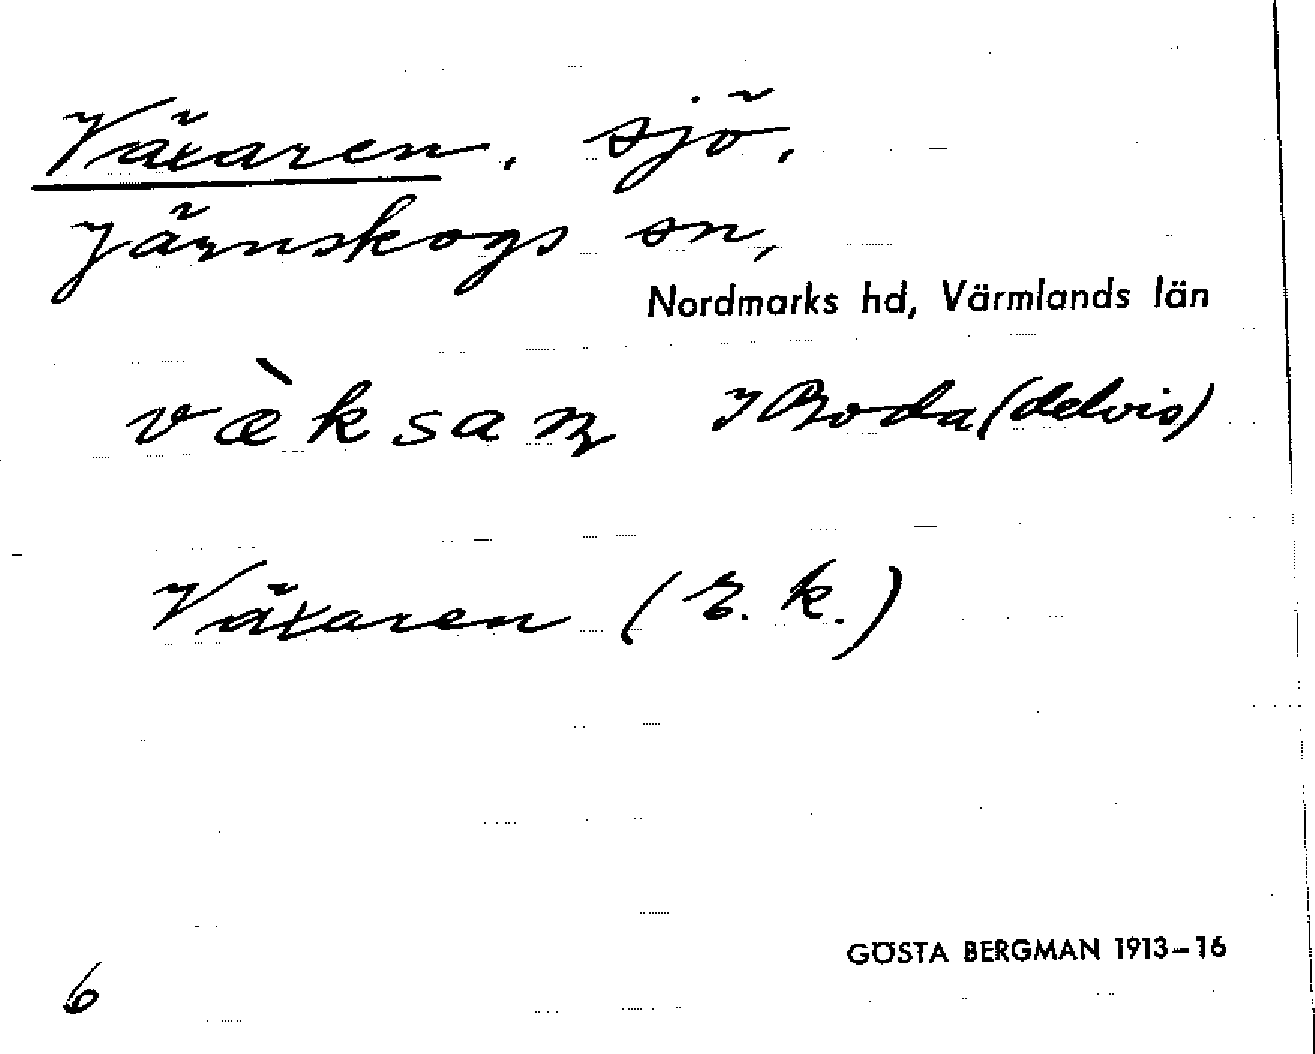 Växaren, sjö,
Järnskogs sn,
Nordmarks hd, Värmlands län
væ̀ksaɳ I Boda (delvis)
Växaren (E. k.)
GÖSTA BERGMAN 1913–16
6